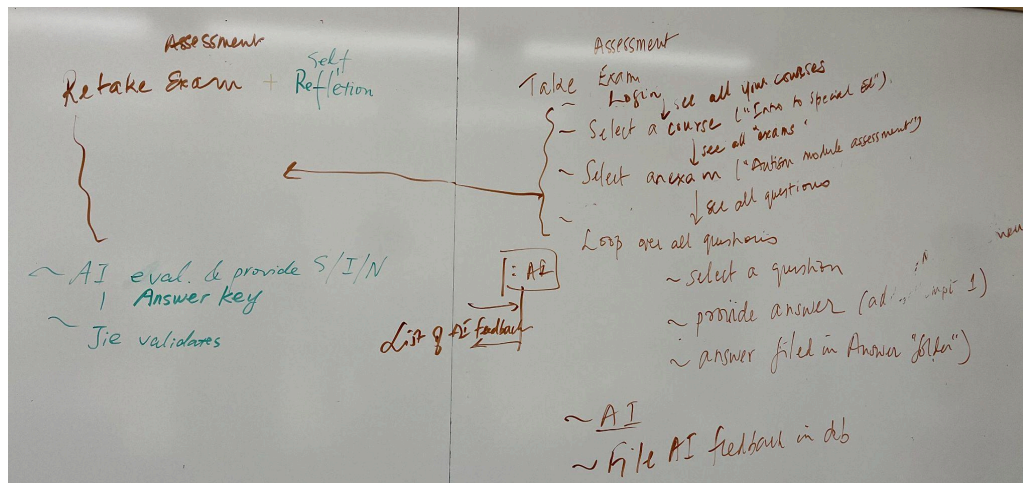 Assessment
Retake Exam + Self
Refletion
~ AI eval. & provide S/I/N
Answer key
~ Jie validates
Assessment
Take Exam
~ Login
↓ see all your courses
~ Select a course ("Intro to special Ed").
↓ see all "exams"
~ Select an exam ("Autism module assessment")
↓ see all questions
~ Loop over all questions
~ select a question
~ provide answer (
1)
~ answer filed in Answer "folder")
new
: AI
List of AI feedback
~ AI
~ File AI feedback in db